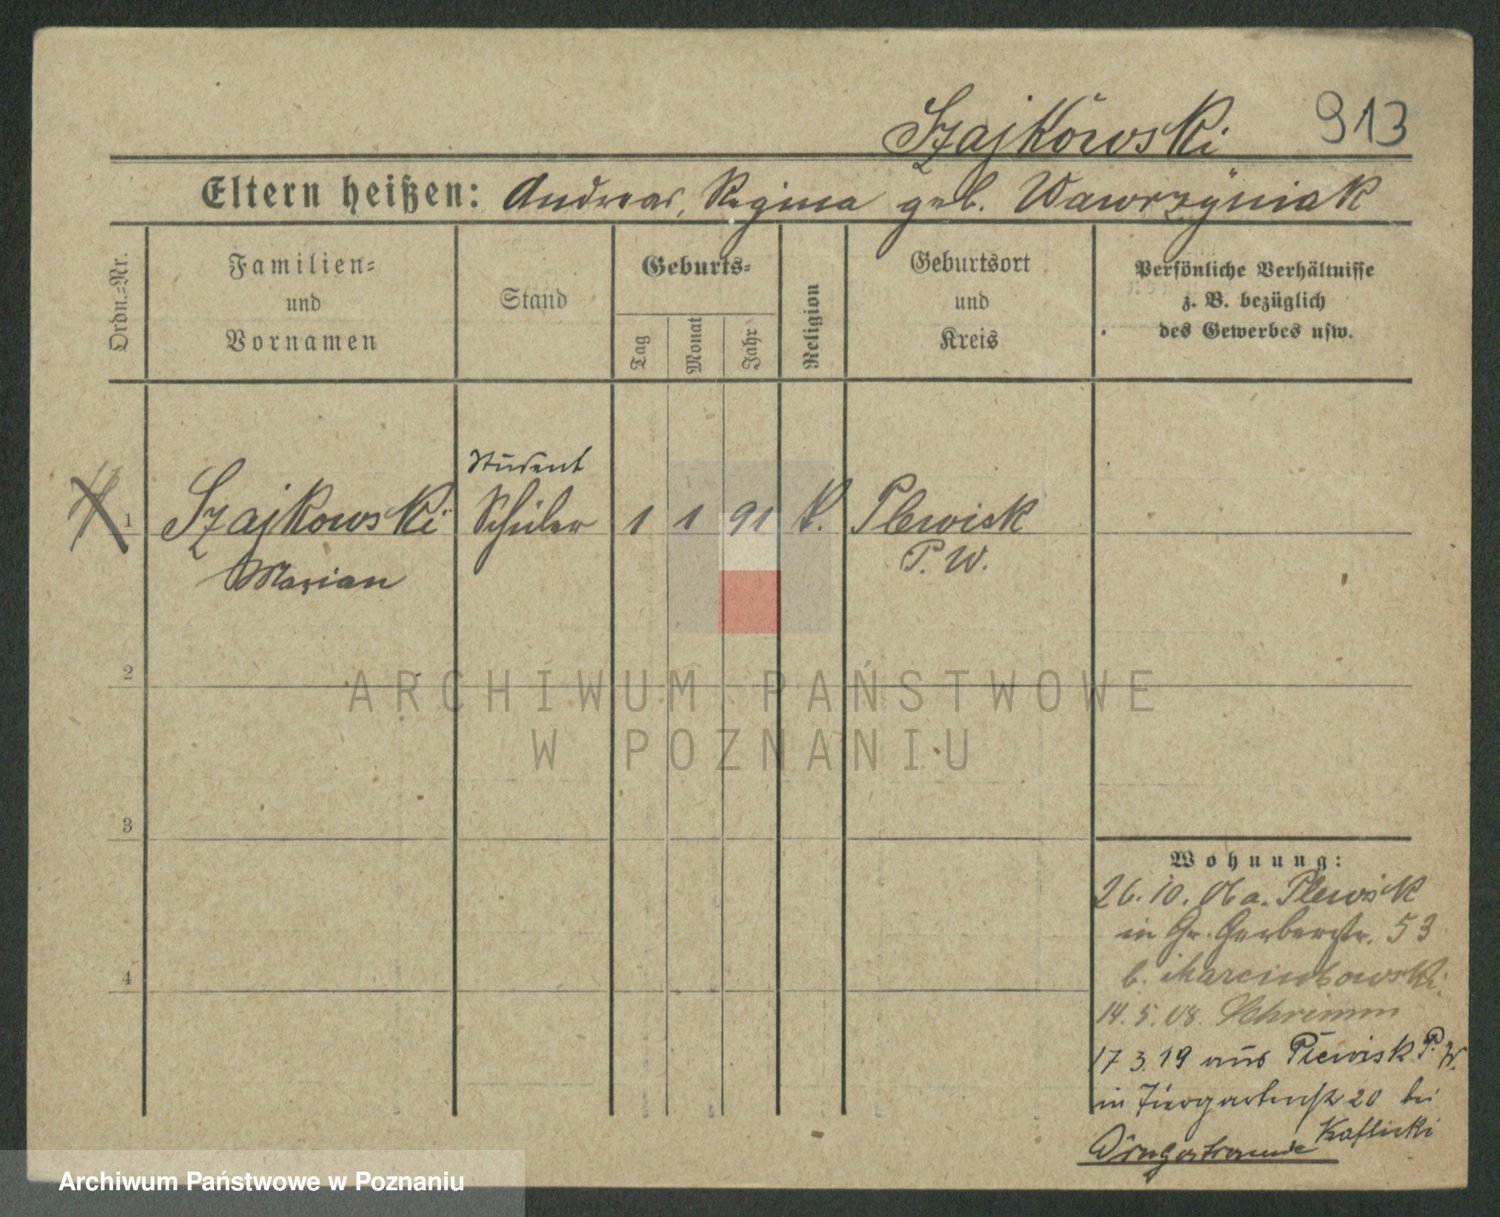 Szajkowski 913
Eltern heißen: Andreas, Regina geb. Wawrzyniak
Ordn.-Nr.
Familien-
und
Vornamen
Stand
Geburts-
Tag
Monat
Jahr
Religion
Geburtsort
und
Kreis
Persönliche Verhältnisse
z. B. bezüglich
des Gewerbes usw.
Student
1 Szajkowski Schüler 1 1 91 k. Plewisk
Marian P. W.
2
ARCHIWUM PAŃSTWOWE
W POZNANIU
3
Wohnung:
26. 10. 06 a. Plewisk
in Gr. Gerberstr. 53
b. Marcinkowski
4
14. 5. 08. Schrimm
17 3. 19 aus Plewisk P. W.
in Tiergartenstr 20 bei
Kaflicki
Archiwum Państwowe w Poznaniu